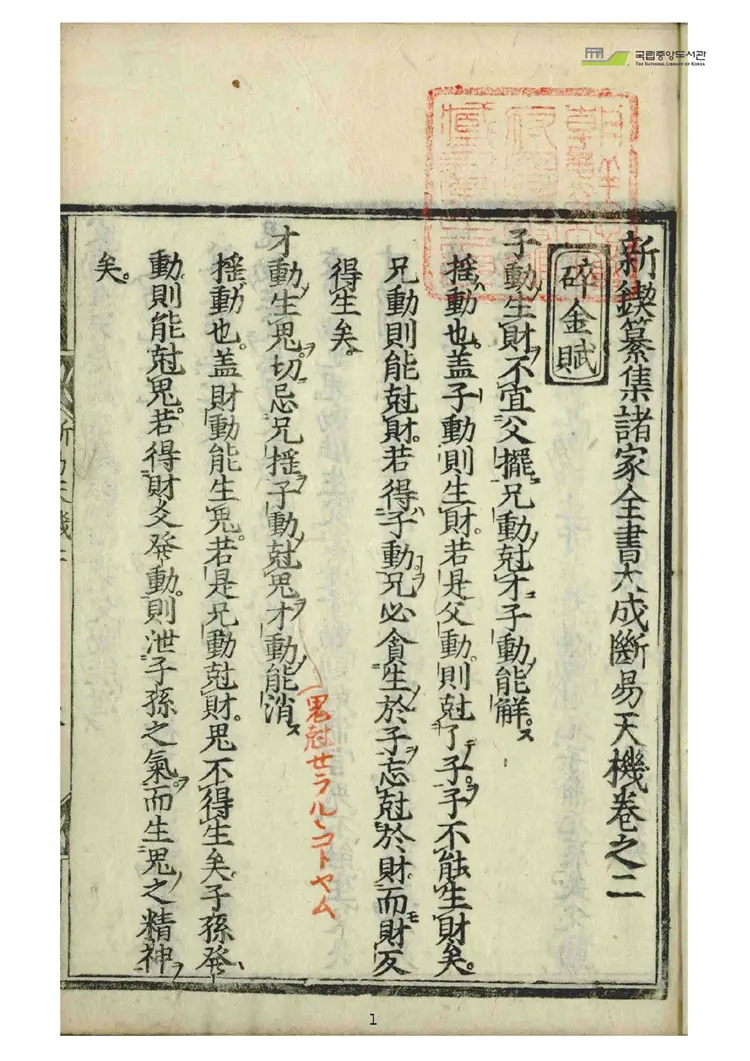 국립중앙도서관
THE NATIONAL LIBRARY OF KOREA
新鍥纂集諸家全書大成斷易天機卷之二
碎金賦
子動生財不宜父擺兄動尅才子動能解
搖動也盖子動則生財若是父動則尅了子子不能生財矣
兄動則能尅財若得子動兄必貪生於子忘尅於財而財反
得生矣
才動生鬼切忌兄搖子動尅鬼才動能消
搖動也盖財動能生鬼若是兄動尅財鬼不得生矣子孫發
動則能尅鬼若得財爻發動則泄子孫之氣而生鬼之精神
矣
鬼尅セラルヽコトヤム
1